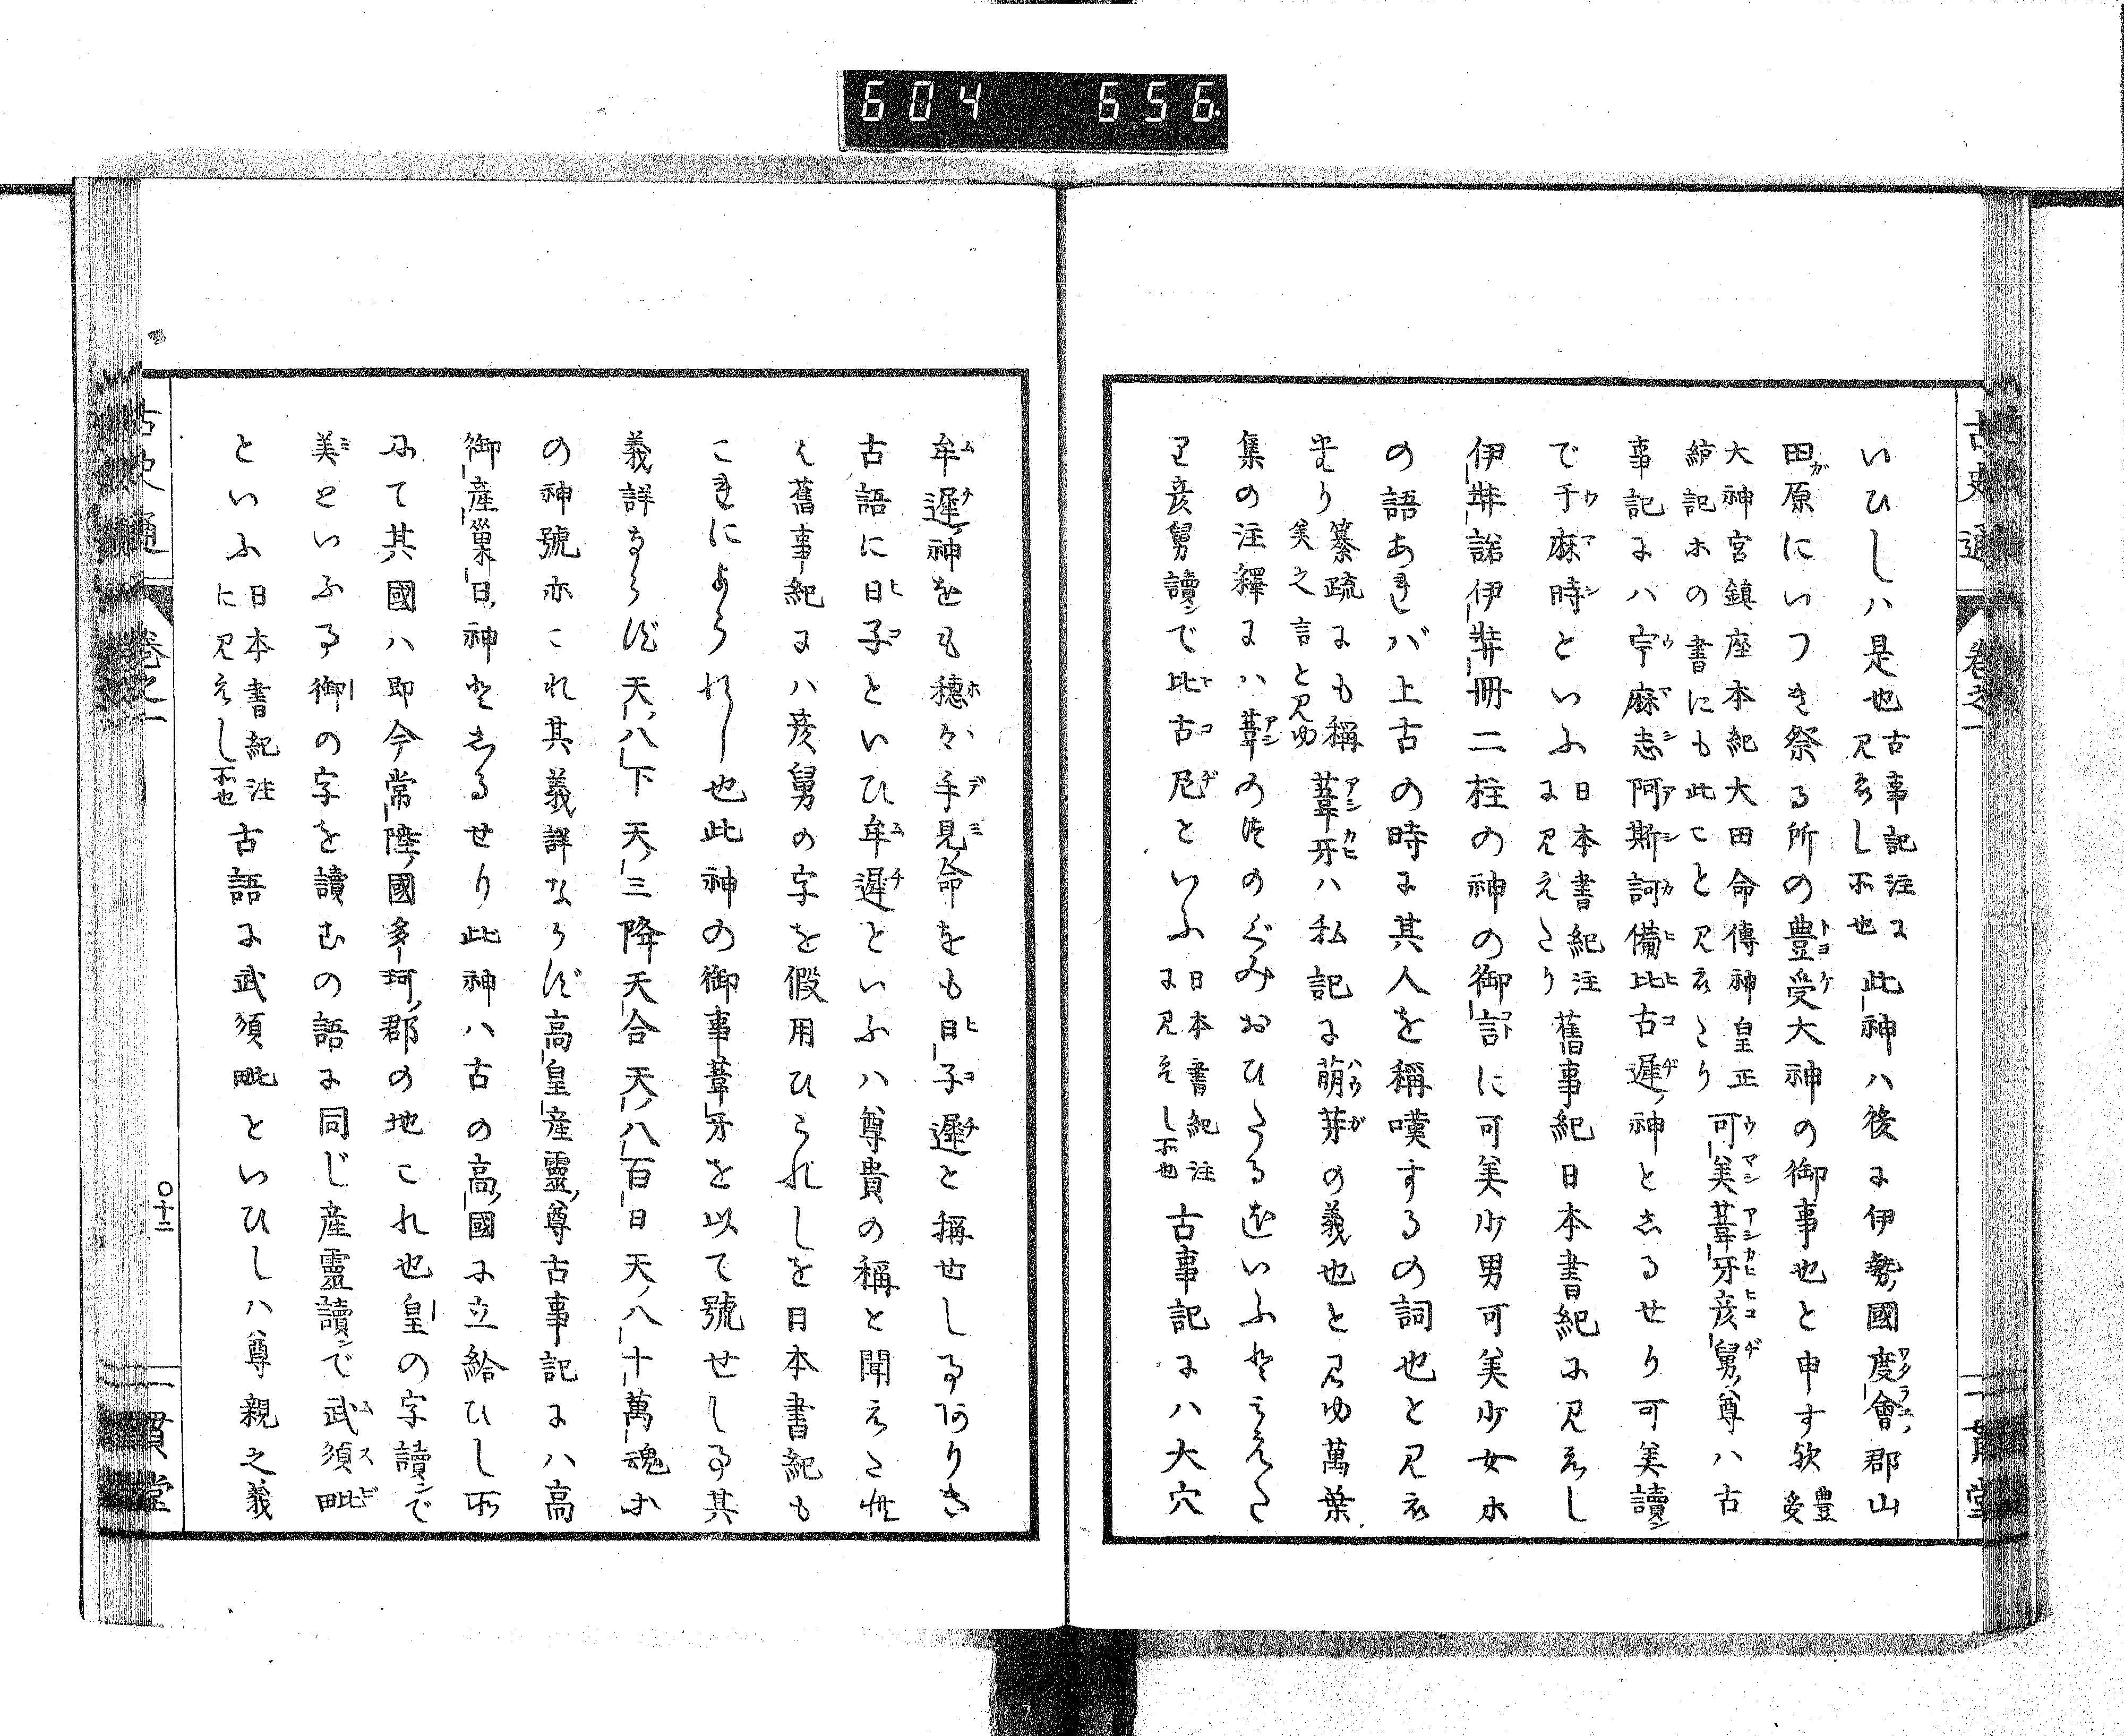 604 656
古史通
卷之一
一貫堂
いひしハ是也古事記注に見えし所也此神ハ後に伊勢國度會郡山
田原にいつき祭る所の豊受大神の御事也と申す歟豊受
大神宮鎮座本紀大田命傳神皇正統記ホの書にも此こと見えたり可美葦牙彦舅尊ハ古
事記にハ宇麻志阿斯訶備比古遲神としるせり可美讀
で于麻時といふ日本書紀注に見えたり舊事紀日本書紀に見えし
伊弉諾伊弉冊二柱の神の御言に可美少男可美少女ホ
の語あれバ上古の時に其人を稱嘆するの詞也と見え
たり纂疏にも稱美之言と見ゆ葦牙ハ私記に萌芽の義也と見ゆ萬葉
集の注釋にハ葦のつのぐみおひたるをいふと見えた
り彦舅讀で比古尼といふ日本書紀注に見えし所也古事記にハ大穴
牟遲神をも穗々手見命をも日子遲と稱せし事ありき
古語に日子といひ牟遲といふハ尊貴の稱と聞えたれ
ど舊事紀にハ彦舅の字を假用ひられしを日本書紀も
これによられし也此神の御事葦牙を以て號せし事其
義詳ならず天八下天三降天合天八百日天八十萬魂ホ
の神號亦これ其義詳ならず高皇産靈尊古事記にハ高
御産巣日神としるせり此神ハ古の高國に立給ひし所
にて其國ハ即今常陸國多珂郡の地これ也皇の字讀で
美といふ事御の字を讀むの語に同じ産靈讀で武須毗
といふ日本書紀注に見えし所也古語に武須毗といひしハ尊親之義
古史通
卷之一
〇十二
一貫堂